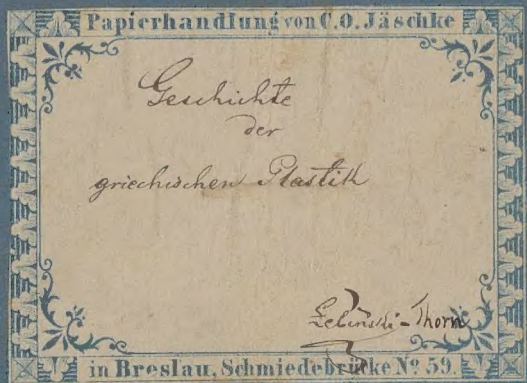 Papierhandlung von C. O. Jäschke
Geschichte
der
griechischen Plastik
Zelinski-Thorn
in Breslau, Schmiedebrücke No 59.